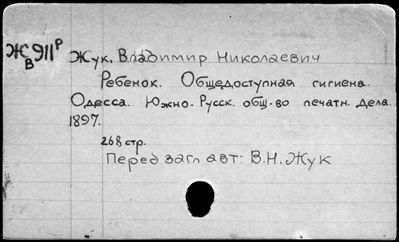 Ж 911 р
В
Жук, Владимир Николаевич
Ребенок. Общедоступная гигиена.
Одесса. Южно-Русск. общ-во печатн. дела.
1897.
268 стр.
Перед загл авт: В.Н. Жук